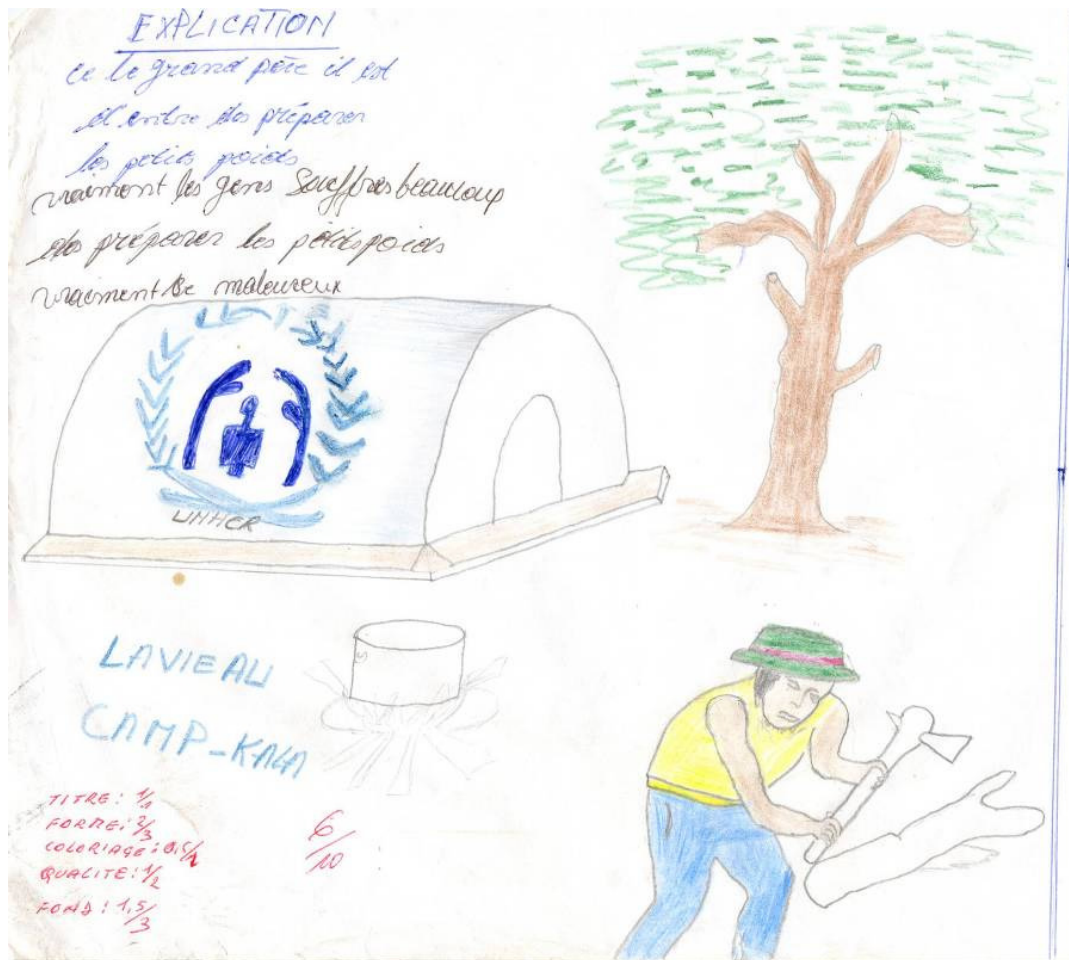 EXPLICATION
ce le grand père il est
et entre des préparer
les petits poids
vraiment les gens Souffres beaucoup
des préparer les petits poids
vraiment maleureux
UNHCR
LAVIE AU
CAMP-KALA
TITRE: 1/1
FORME: 2/3
COLORIAGE: 0,5/1
QUALITE: 1/2
FOND: 1,5/3
6/10